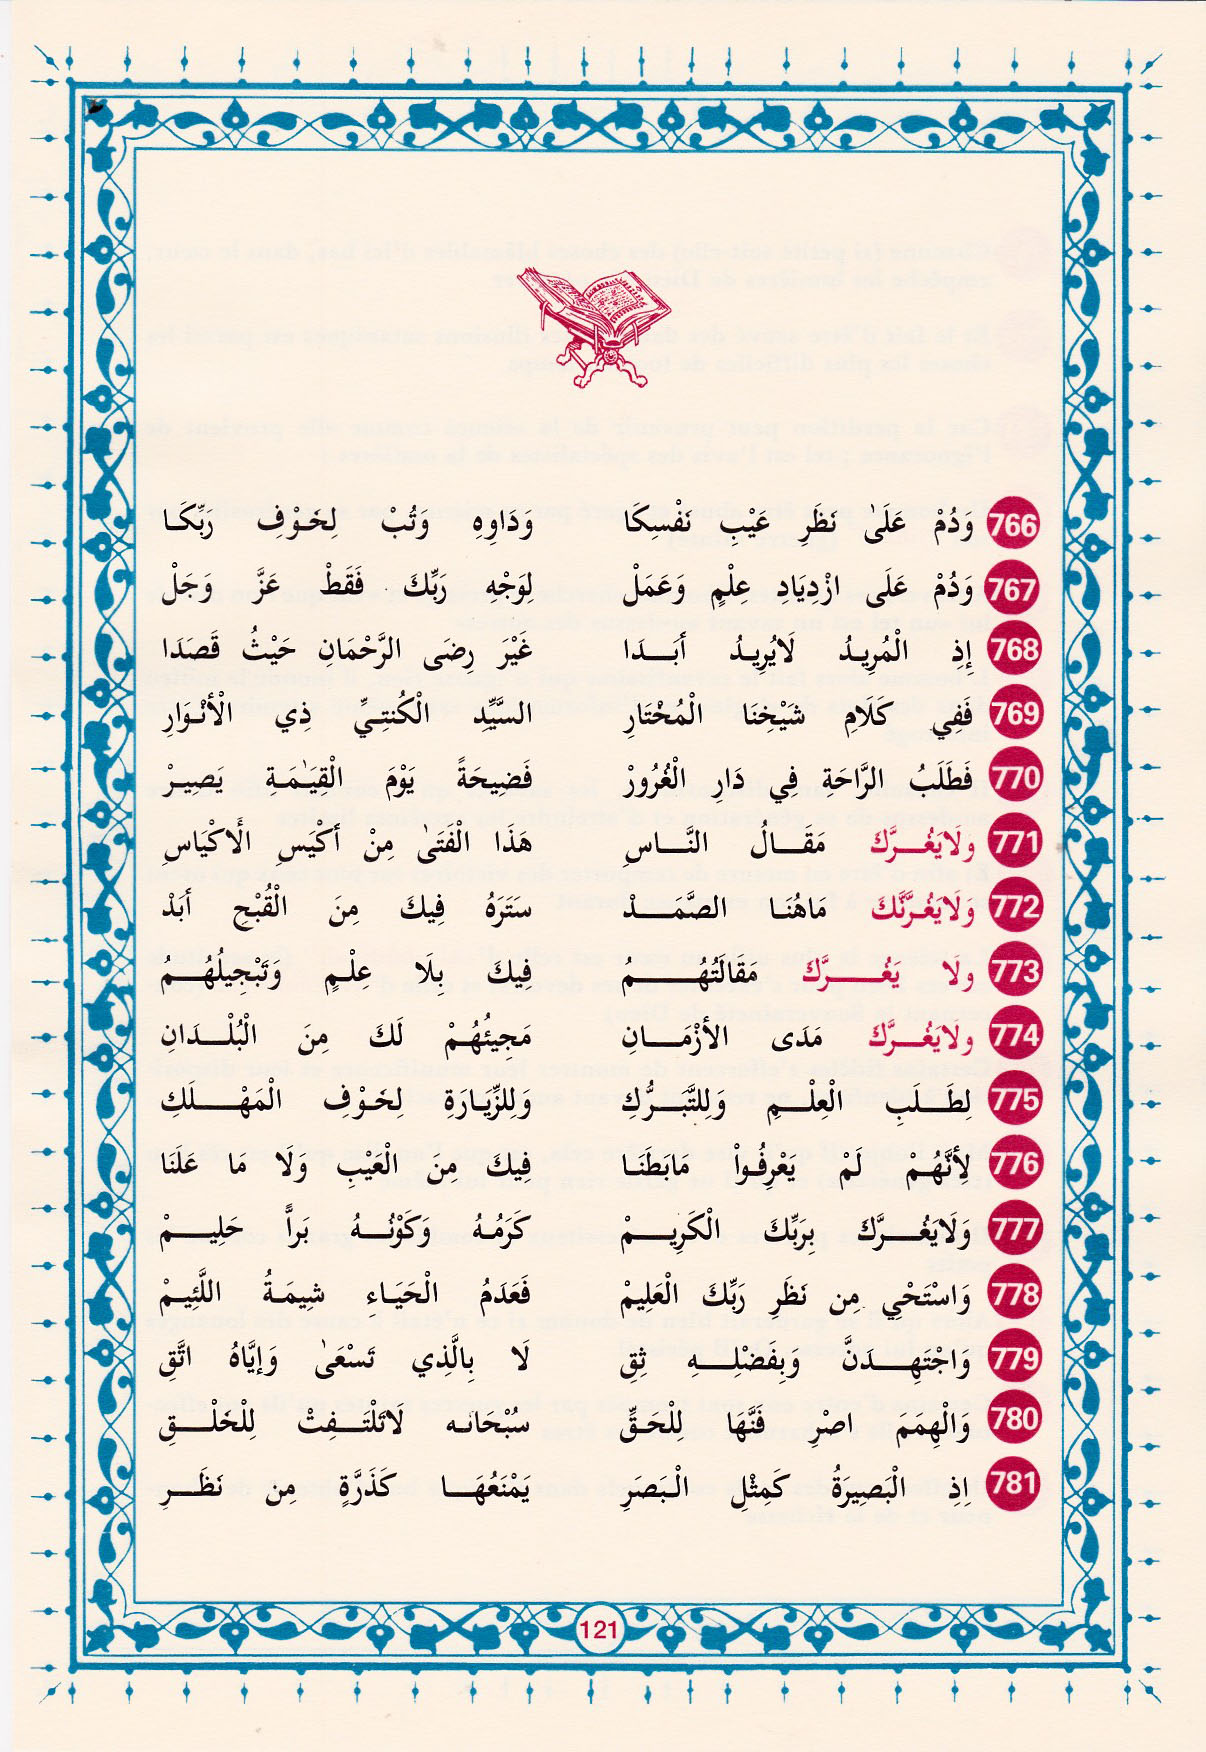 766 وَدُمْ عَلَىٰ نَظَرِ عَيْبِ نَفْسِكَا وَدَاوِهِ وَتُبْ لِخَوْفِ رَبِّكَا
767 وَدُمْ عَلَى ازْدِيَادِ عِلْمٍ وَعَمَلْ لِوَجْهِ رَبِّكَ فَقَطْ عَزَّ وَجَلْ
768 إِذِ الْمُرِيدُ لَايُرِيدُ أَبَدَا غَيْرَ رِضَى الرَّحْمَانِ حَيْثُ قَصَدَا
769 فَفِي كَلَامِ شَيْخِنَا الْمُخْتَارِ السَّيِّدِ الْكُنتِيِّ ذِي الْأَنْوَارِ
770 فَطَلَبُ الرَّاحَةِ فِي دَارِ الْغُرُورْ فَضِيحَةً يَوْمَ الْقِيَـٰمَةِ يَصِيرْ
771 ولَايَغُرَّكَ مَقَالُ النَّاسِ هَذَا الْفَتَىٰ مِنْ أَكْيَسِ الْاَكْيَاسِ
772 وَلَايَغُرَّنَّكَ مَاهُنَا الصَّمَدْ سَتَرَهُ فِيكَ مِنَ الْقُبْحِ أَبَدْ
773 ولَا يَغُرَّكَ مَقَالَتُهُمُ فِيكَ بِلَا عِلْمٍ وَتَبْجِيلُهُمُ
774 ولَايَغُرَّكَ مَدَى الأَزْمَانِ مَجِيئُهُمْ لَكَ مِنَ الْبُلْدَانِ
775 لِطَلَبِ الْعِلْمِ وَلِلتَّبَرُّكِ وَلِلزِّيَارَةِ لِخَوْفِ الْمَهْلَكِ
776 لِأَنَّهُمْ لَمْ يَعْرِفُواْ مَابَطَنَا فِيكَ مِنَ الْعَيْبِ وَلَا مَا عَلَنَا
777 وَلَايَغُرَّكَ بِرَبِّكَ الْكَرِيمْ كَرَمُهُ وَكَوْنُهُ بَراًّ حَلِيمْ
778 وَاسْتَحْيِ مِن نَظَرِ رَبِّكَ الْعَلِيمْ فَعَدَمُ الْحَيَاء شِيمَةُ اللَّئِيمْ
779 وَاجْتَهِدَنَّ وَبِفَضْلِهِ ثِقِ لَا بِالَّذِي تَسْعَىٰ وَإِيَّاهُ اتَّقِ
780 وَالْهِمَمَ اصرِ فَنَّهَا لِلْحَقِّ سُبْحَانَه لَاتَلْتَفِتْ لِلْخَلْقِ
781 اِذِ الْبَصِيرَةُ كَمِثْلِ الْبَصَرِ يَمْنَعُهَا كَذَرَّةٍ مِن نَظَرِ
121